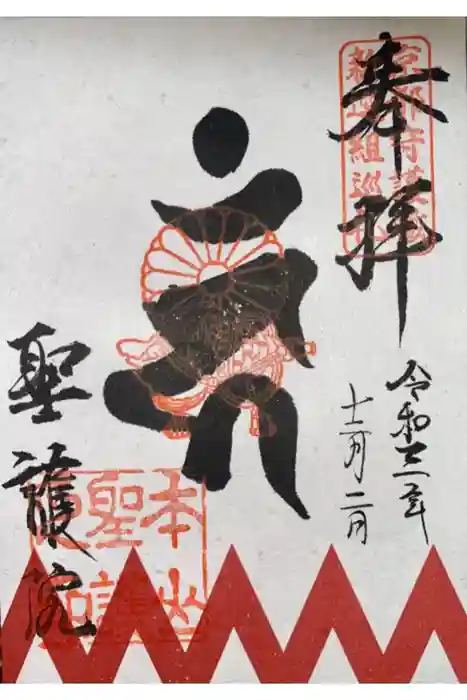 奉拝
京都守護職
新選組巡礼
令和三年
十二月二日
聖護院
本山
聖護
院印